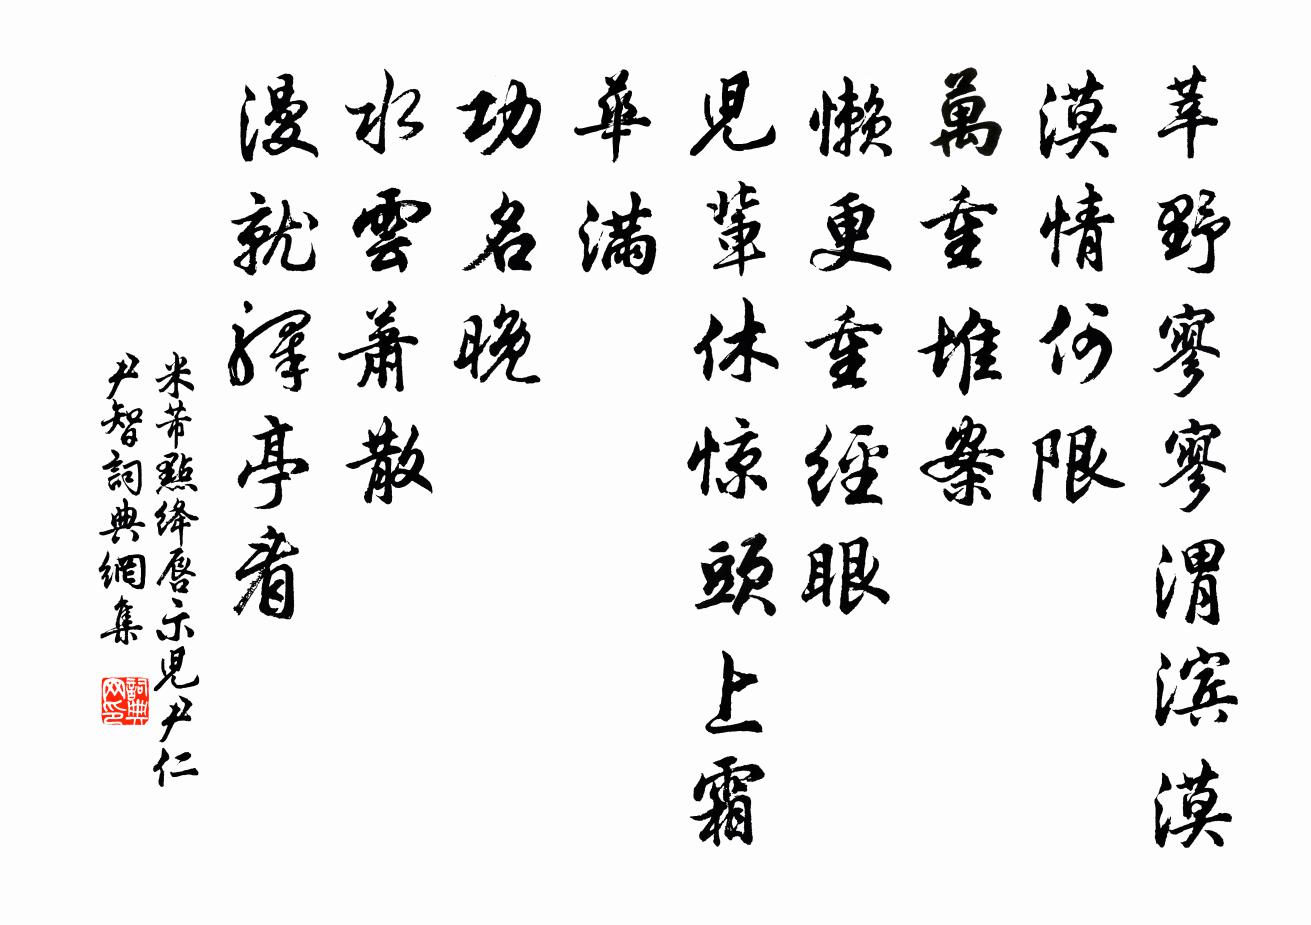 莘野寥寥渭滨漠
漠情何限
萬重堆案
懒更重經眼
児輩休惊頭上霜
華滿
功名晚
水雲蕭散
漫就驛亭看
米芾點絳唇示児尹仁
尹智詞典網集
詞典网印